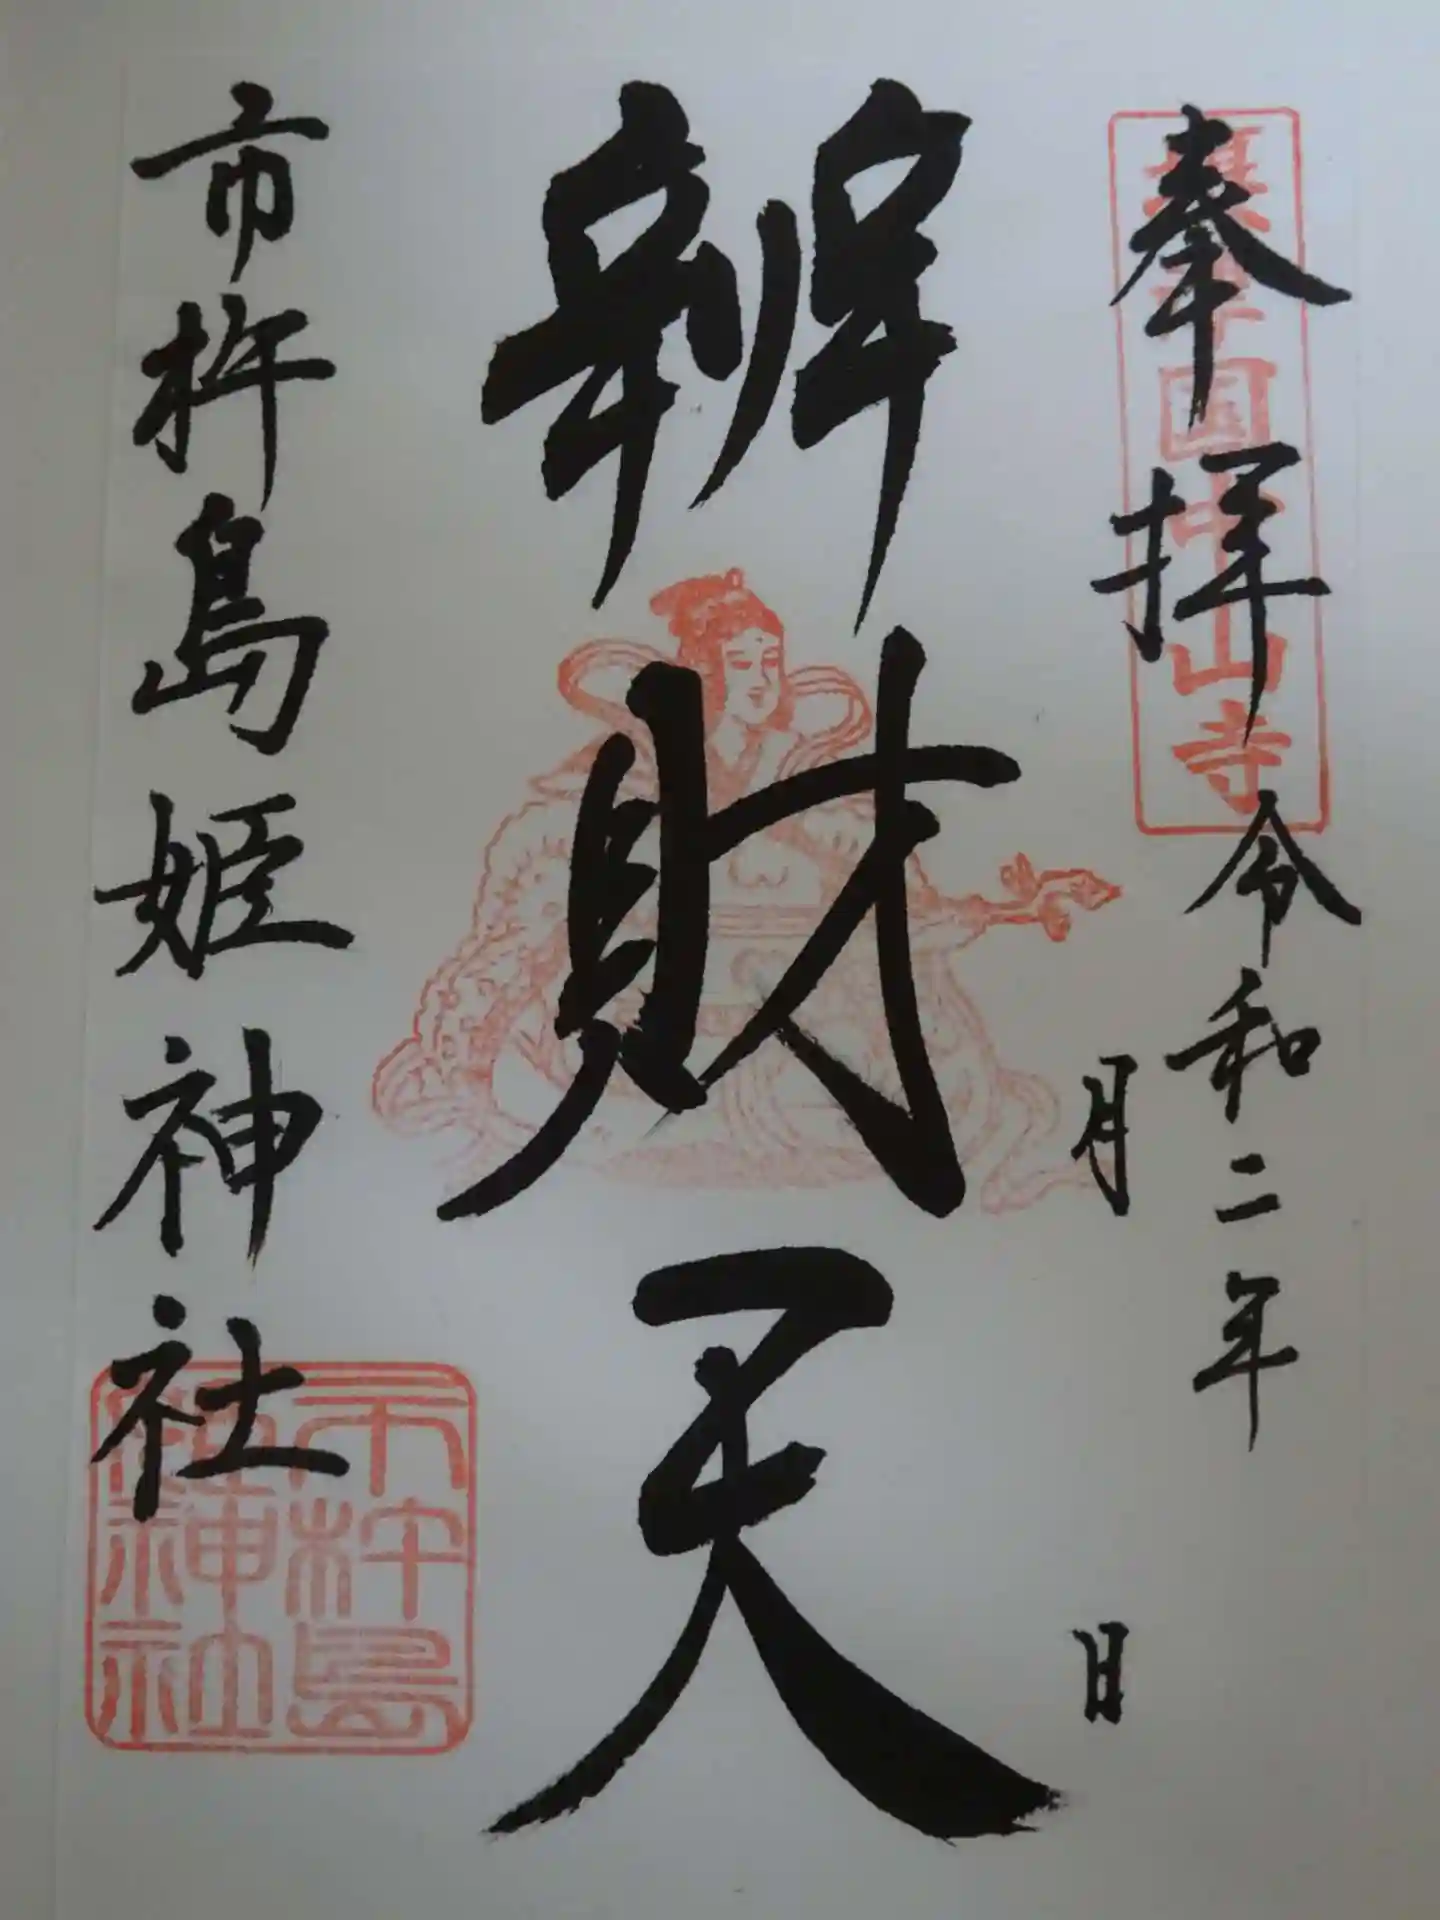 奉拝
摂津国中山寺
令和二年
月　日
辨財天
市杵島姫神社
市杵島
姫神社